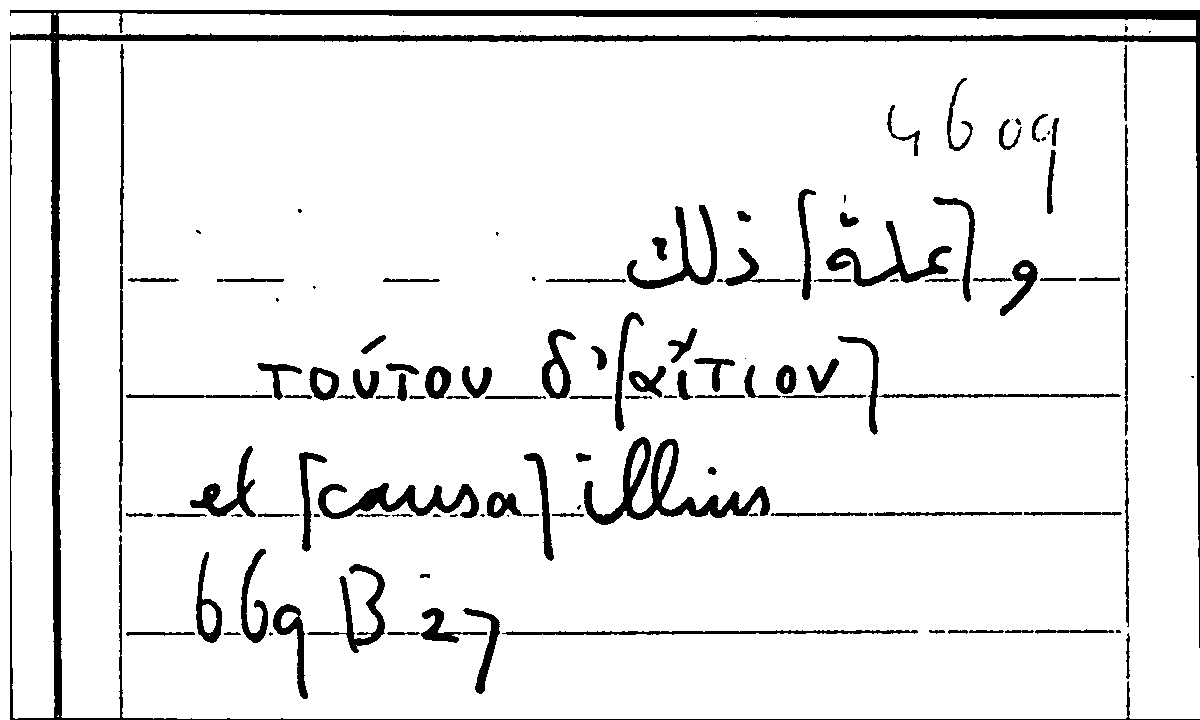 4609
و [علة] ذلك
τούτου δ' [αἴτιον]
et [causa] illius
669 B 27